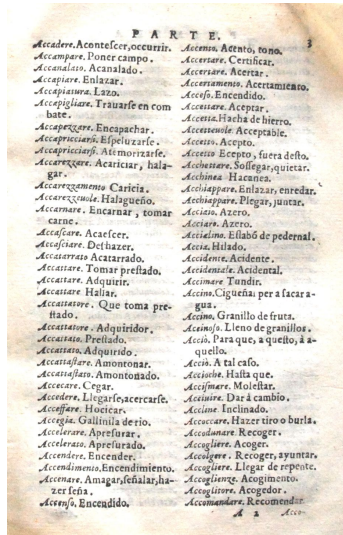 PARTE.
3
Accadere. Acontescer, occurrir.
Accampare. Poner campo.
Accanalato. Acanalado.
Accapiare. Enlazar.
Accapiatura. Lazo.
Accapigliare. Trauarse en com
bate.
Accapezzare. Encapachar.
Accapricciarsi. Espeluzarse.
Accapricciarsi. Atemorizarse.
Accarezzare. Acariciar, hala-
gar.
Accarezzamento Caricia.
Accarezzeuole. Halagueño.
Accarnare. Encarnar, tomar
carne.
Accascare. Acaescer.
Accasciare. Deshazer.
Accatarrato Acatarrado.
Accattare. Tomar prestado.
Accattare. Adquirir.
Accattare Hallar.
Accattatore. Que toma pre-
stado.
Accattatore. Adquiridor.
Accattato. Prestado.
Accattato. Adquirido.
Accattastare. Amontonar.
Accattastato. Amontonado.
Accecare. Cegar.
Accedere. Llegarse, acercarse.
Acceffare. Hocicar.
Accegia. Gallinila de rio.
Accelerare. Apresurar.
Accelerato. Apresurado.
Accendere. Encender.
Accendimento. Encendimiento.
Accenare. Amagar, señalar, ha-
zer seña.
Accenso. Encendido.
Accento. Acento, tono.
Accertare. Certificar.
Accertare. Acertar.
Accertamento. Acertamiento.
Acceso. Encendido.
Accettare. Aceptar.
Accetta. Hacha de hierro.
Accetteuole. Acceptable.
Accetto. Acepto.
Accetto Ecepto, fuera desto.
Acchettare. Sossegar, quietar.
Acchinea Hacanea.
Acchiappare. Enlazar, enredar.
Acchiappare. Plegar, juntar.
Acciaio. Azero.
Acciaro. Azero.
Accialino. Eslabõ de pedernal.
Accia. Hilado.
Accidente. Acidente.
Accidentale. Acidental.
Accimare Tundir.
Accino. Cigueña; per a sacar a-
gua.
Accino. Granillo de fruta.
Acinoso. Lleno de granillos.
Acciò. Para que, a questo, à a-
quello.
Acciò. A tal caso.
Accioche. Hasta que.
Accismare. Molestar.
Acciuire. Dar à cambio.
Accline Inclinado.
Accoccare. Hazer tiro o burla.
Accodunare. Recoger.
Accogliere. Acoger.
Accolgere. Recoger, ayuntar.
Accogliere. Llegar de repente.
Accoglienze. Acogimento.
Accoglitore. Acogedor.
Accomandare. Recomendar
A 2 Acco-